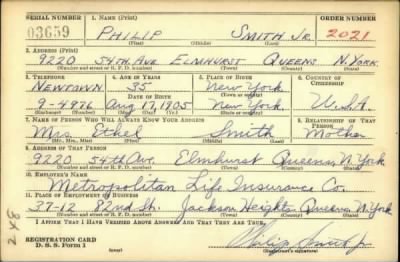 SERIAL NUMBER 1. NAME (Print) ORDER NUMBER
03639 PHILIP SMITH JR. 2021
(First) (Middle) (Last)
2. ADDRESS (Print)
9220 54TH AVE ELMHURST QUEENS N. YORK
(Number and street or R. F. D. number) (Town) (County) (State)
3. TELEPHONE 4. AGE IN YEARS 5. PLACE OF BIRTH 6. COUNTRY OF CITIZENSHIP
NEWTOWN 35 New York
DATE OF BIRTH (Town or county)
9-4976 Aug 17, 1905 New York U.S.A.
(Exchange) (Number) (Mo.) (Day) (Yr.) (State or country)
7. NAME OF PERSON WHO WILL ALWAYS KNOW YOUR ADDRESS 8. RELATIONSHIP OF THAT PERSON
Mrs. Ethel Smith Mother
(Mr., Mrs., Miss) (First) (Middle) (Last)
9. ADDRESS OF THAT PERSON
9220 54th Ave. Elmhurst Queens, N. York
(Number and street or R. F. D. number) (Town) (County) (State)
10. EMPLOYER'S NAME
Metropolitan Life Insurance Co.
11. PLACE OF EMPLOYMENT OR BUSINESS
37-12 82nd St. Jackson Heights Queens, N. York
(Number and street or R. F. D. number) (Town) (County) (State)
I AFFIRM THAT I HAVE VERIFIED ABOVE ANSWERS AND THAT THEY ARE TRUE.
REGISTRATION CARD
D. S. S. Form 1
Philip Smith Jr
248